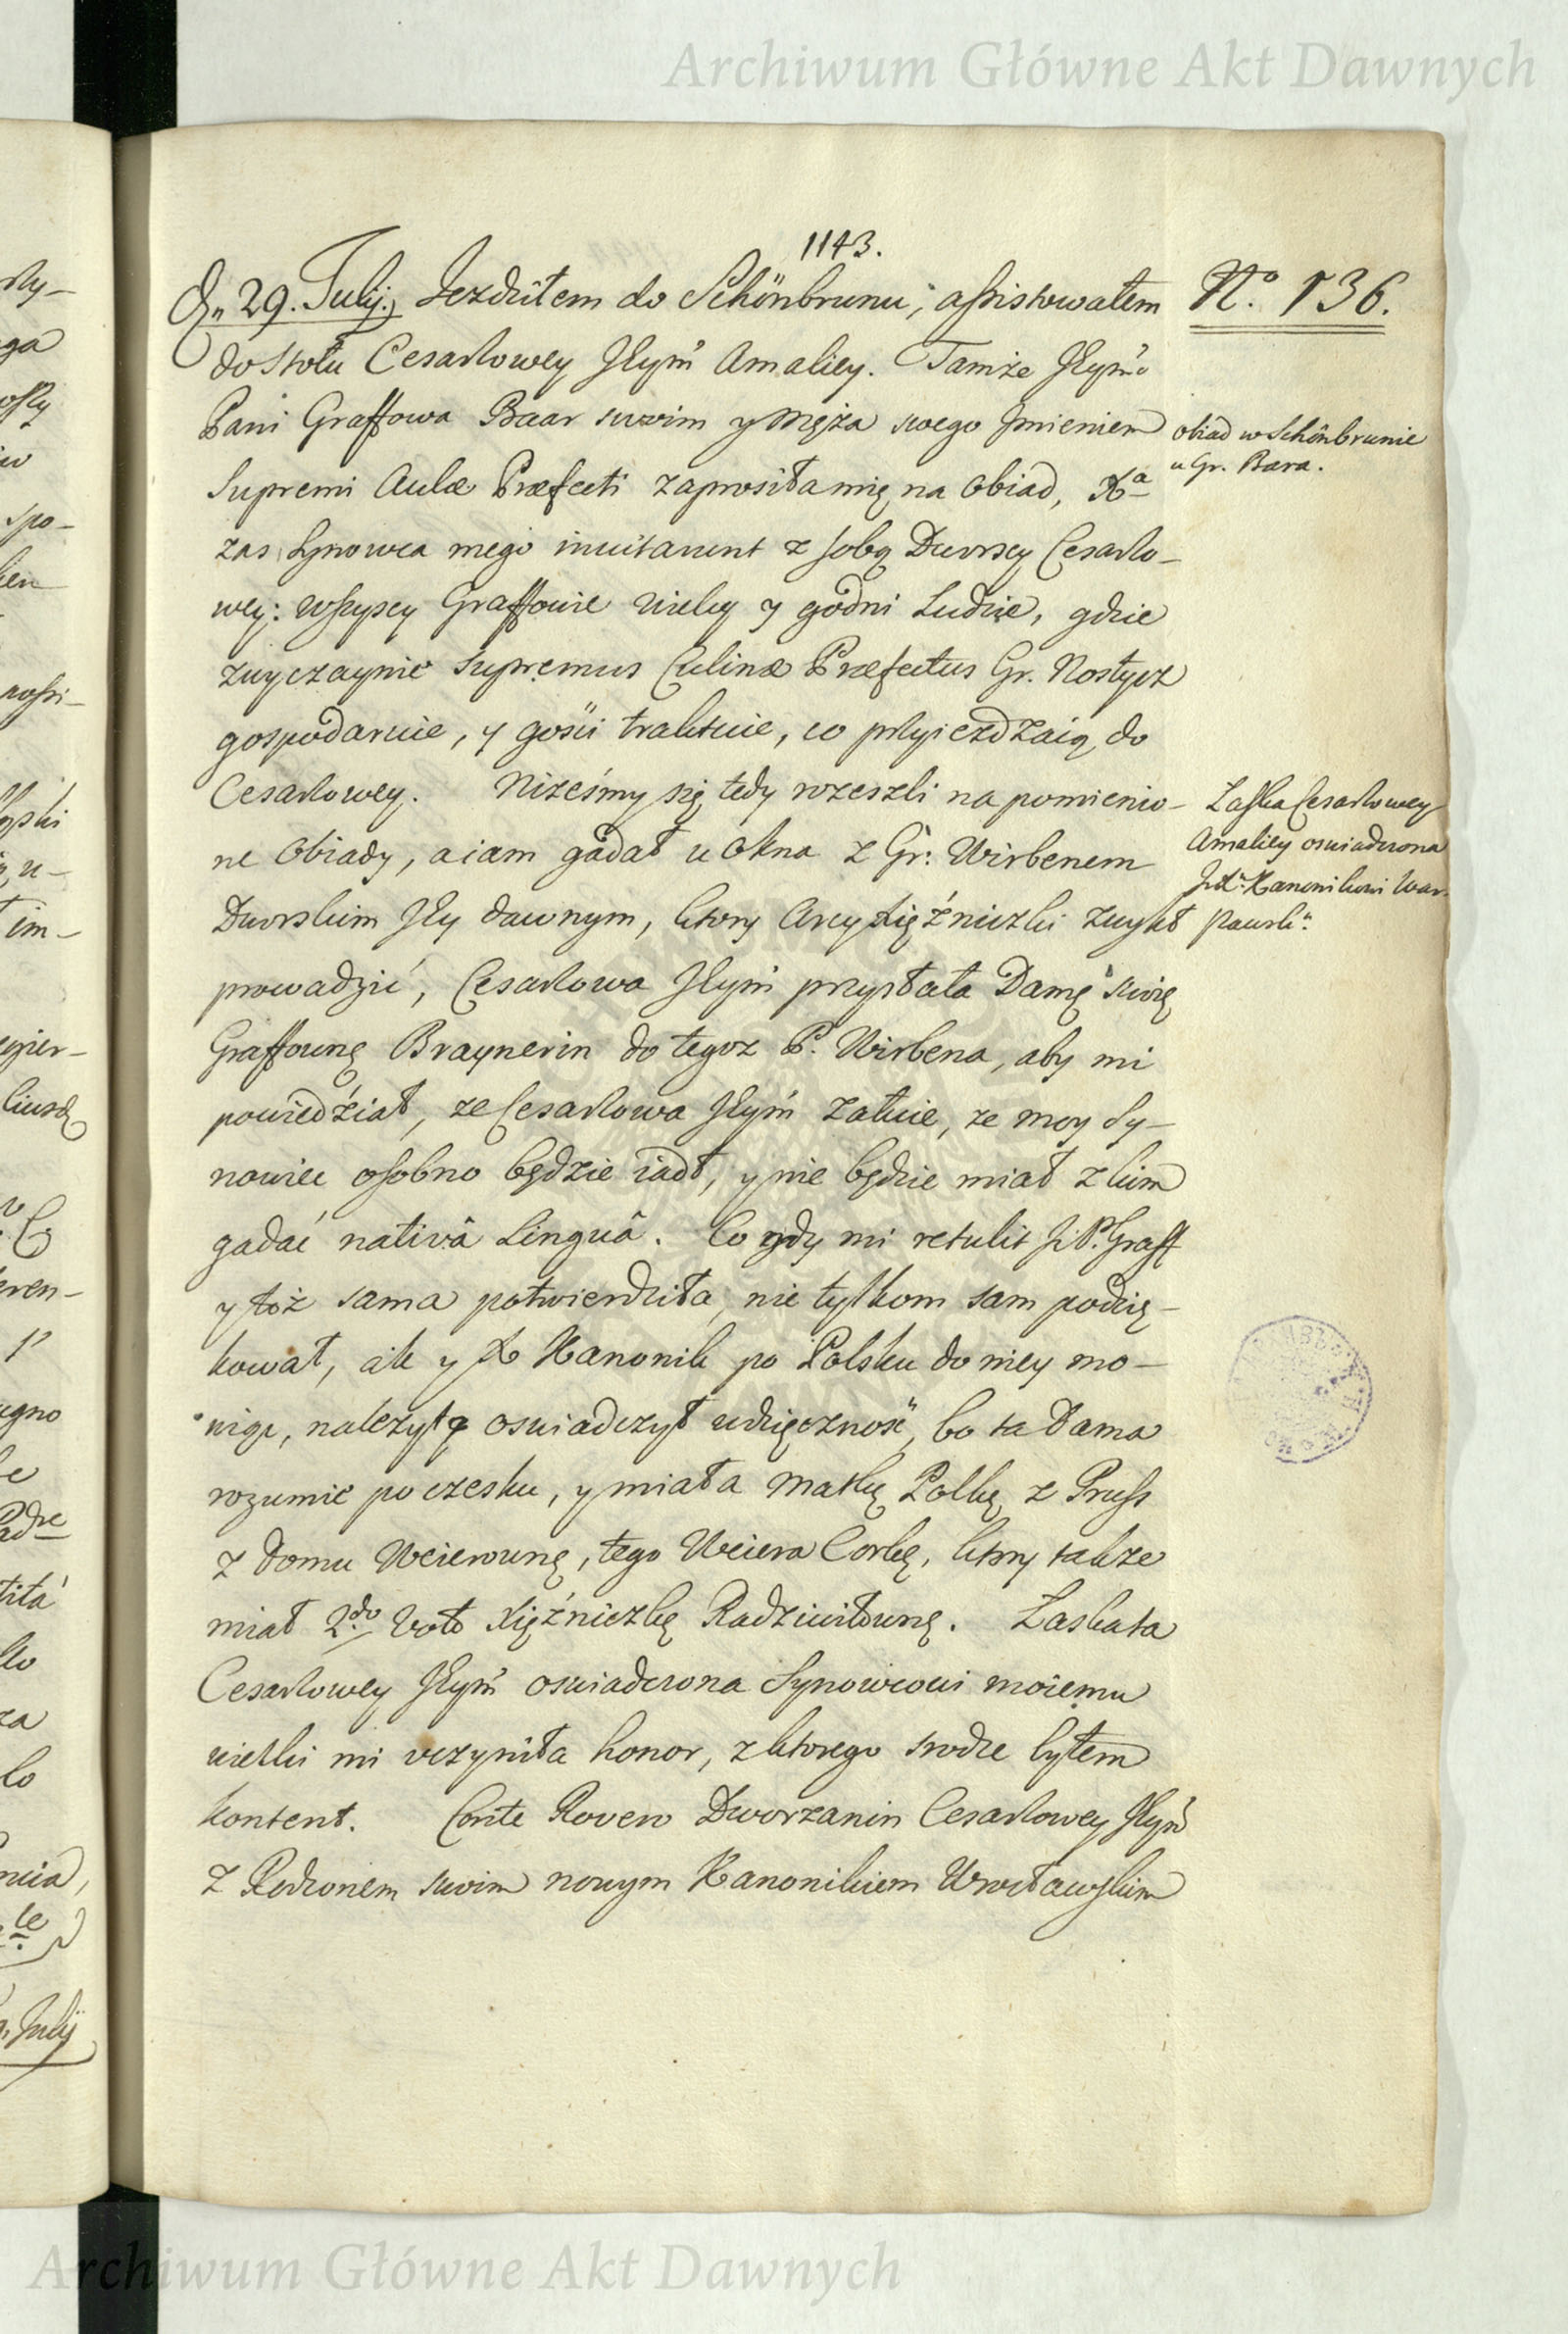 Archiwum Główne Akt Dawnych
1143.
Dn 29. Julij. Jezdziłem do Schönbrunu; assistowałem
N.o 136.
do stołu Cesarzowey Jłym Amaliey. Tamże Jłym
Pani Graffowa Baar swoim y męża swego Jmieniem
obiad w Schönbrunie
u Gr. Bara.
Supremi Aulæ Præfecti zaprosiła mię na obiad, Xa
zas Synowca mego invitarunt z sobą Dworscy Cesarzo-
wey: wszyscy Graffowie wielcy y godni Ludzie, gdzie
zwyczaynie supremus Culinæ Præfectus Gr. Nostycz
gospodaruie, y gosci traktuie, co przyiezdzaią do
Cesarzowey. Niżeśmy się tedy rozeszli na pomienio-
Łaska Cesarzowey
ne obiady, a iam gadał u okna z Gr. Wirbenem
Amaliey oswiadczona
Dworskim Jły dawnym, ktory Arcyxiężniczki zwykł
JXu Kanonikowi War-
szawsk:
prowadzić, Cesarzowa Jłym przysłała Damę swoię
Graffownę Braynerin do tegoz P. Wirbena, aby mi
powiedział, ze Cesarzowa Jłym załuie, ze moy Sy-
nowiec osobno będzie iadł, y nie będzie miał z kim
gadać nativâ Linguâ. Co gdy mi retulit J P. Graff
y toż sama potwierdziła, nie tylkom sam podzię-
kował, ale y X Kanonik po Polsku do niey mo-
wiąc, należytą oswiadczył wdzięczność, bo ta Dama
rozumie po czesku, y miała matkę Polkę z Pruss
z domu Weierownę, tego Weiera Corkę, ktory takze
miał 2do Voto Xiężniczkę Radziwiłownę. Łaska ta
Cesarzowey Jłym oswiadczona Synowcowi moiemu
wielki mi uczyniła honor, z ktorego srodze byłem
kontent. Conte Rovero Dworzanin Cesarzowey Jłym
z Rodzonem swoim nowym Kanonikiem Wrocławskim
Archiwum Główne Akt Dawnych